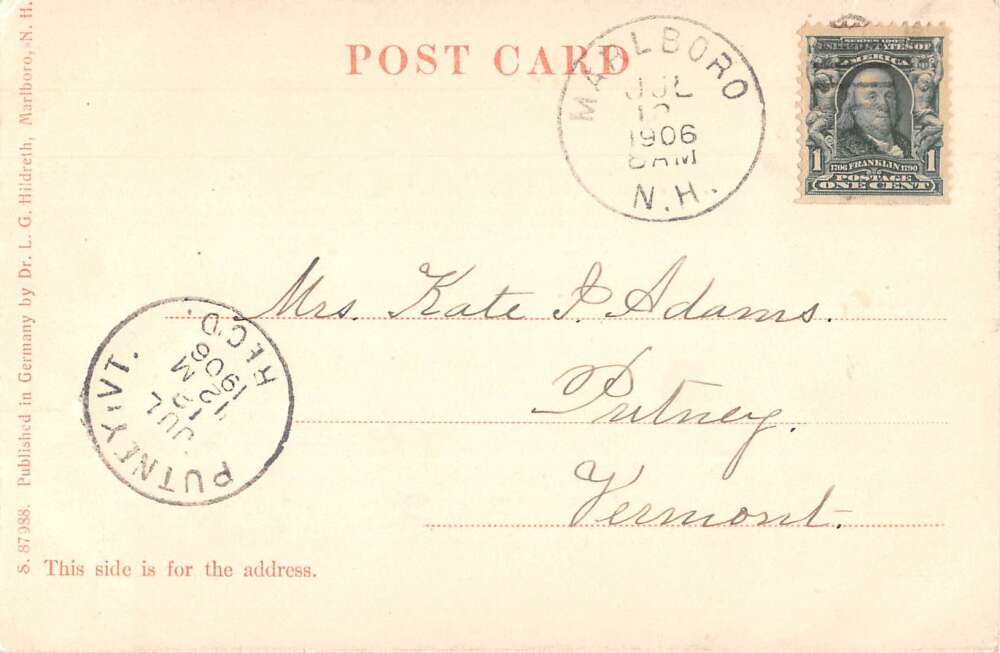 POST CARD
MARLBORO
JUL
1906
8 AM
N.H.
SERIES 1902
UNITED STATES OF
AMERICA
1 1706 FRANKLIN 1790 1
POSTAGE
ONE CENT
Mrs. Kate J. Adams.
Putney.
Vermont.
PUTNEY, VT.
JUL
12 M
1906
REC'D.
S. 87988. Published in Germany by Dr. L. G. Hildreth, Marlboro, N. H.
This side is for the address.